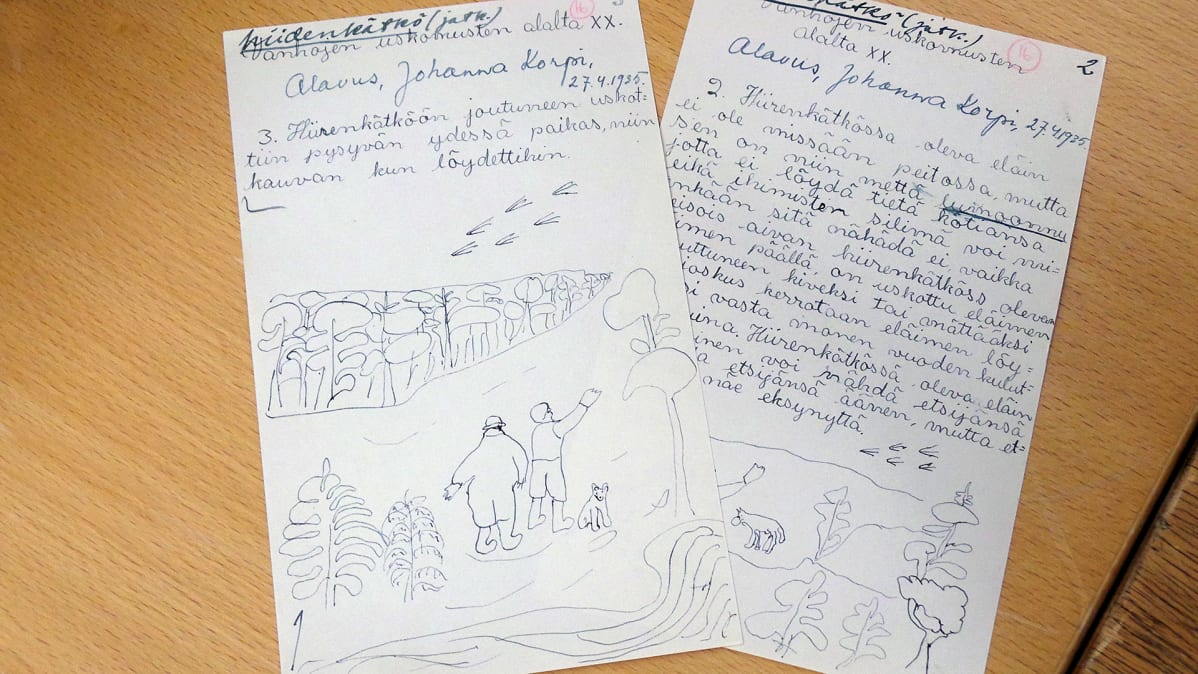 Hiidenkätkö (jatk.) 16
Vanhojen uskomusten alalta XX.
Alavus, Johanna Korpi,
27.4.1935.
3. Hiirenkätköön joutuneen uskot-
tiin pysyvän ydessä paikas, niin
kauvan kun löydettihin.
(jatk.) 16 2
Vanhojen uskomusten
alalta XX.
Alavus, Johanna Korpi, 27.4.1935.
2. Hiirenkätkössa oleva eläin
ei ole missään peitossa, mutta
sen on niin mettä luimoonnu
jotta ei löydä tietä kotiansa
eikä ihimisten silimä voi mi-
nkään sitä nähädä ei vaikka
seisois aivan hiirenkätköss olevan
päällä, on uskottu eläimen
uttuneen kiveksi tai mättääksi
joskus kerrataan eläimen löy-
vasta monen vuoden kulut-
Hiirenkätkössä oleva eläin
voi nähdä etsijänsä
etsijänsä äänen, mutta et-
näe eksynyttä.